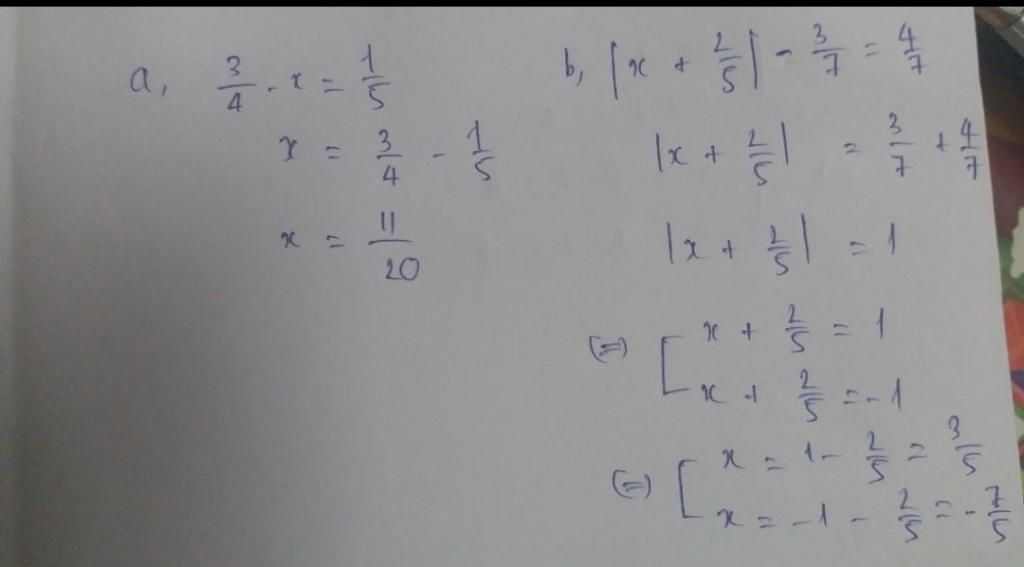 a, 3/4 - x = 1/5
x = 3/4 - 1/5
x = 11/20
b, |x + 2/5| - 3/7 = 4/7
|x + 2/5| = 3/7 + 4/7
|x + 2/5| = 1
(=) [ x + 2/5 = 1
x + 2/5 = -1
(=) [ x = 1 - 2/5 = 3/5
x = -1 - 2/5 = -7/5